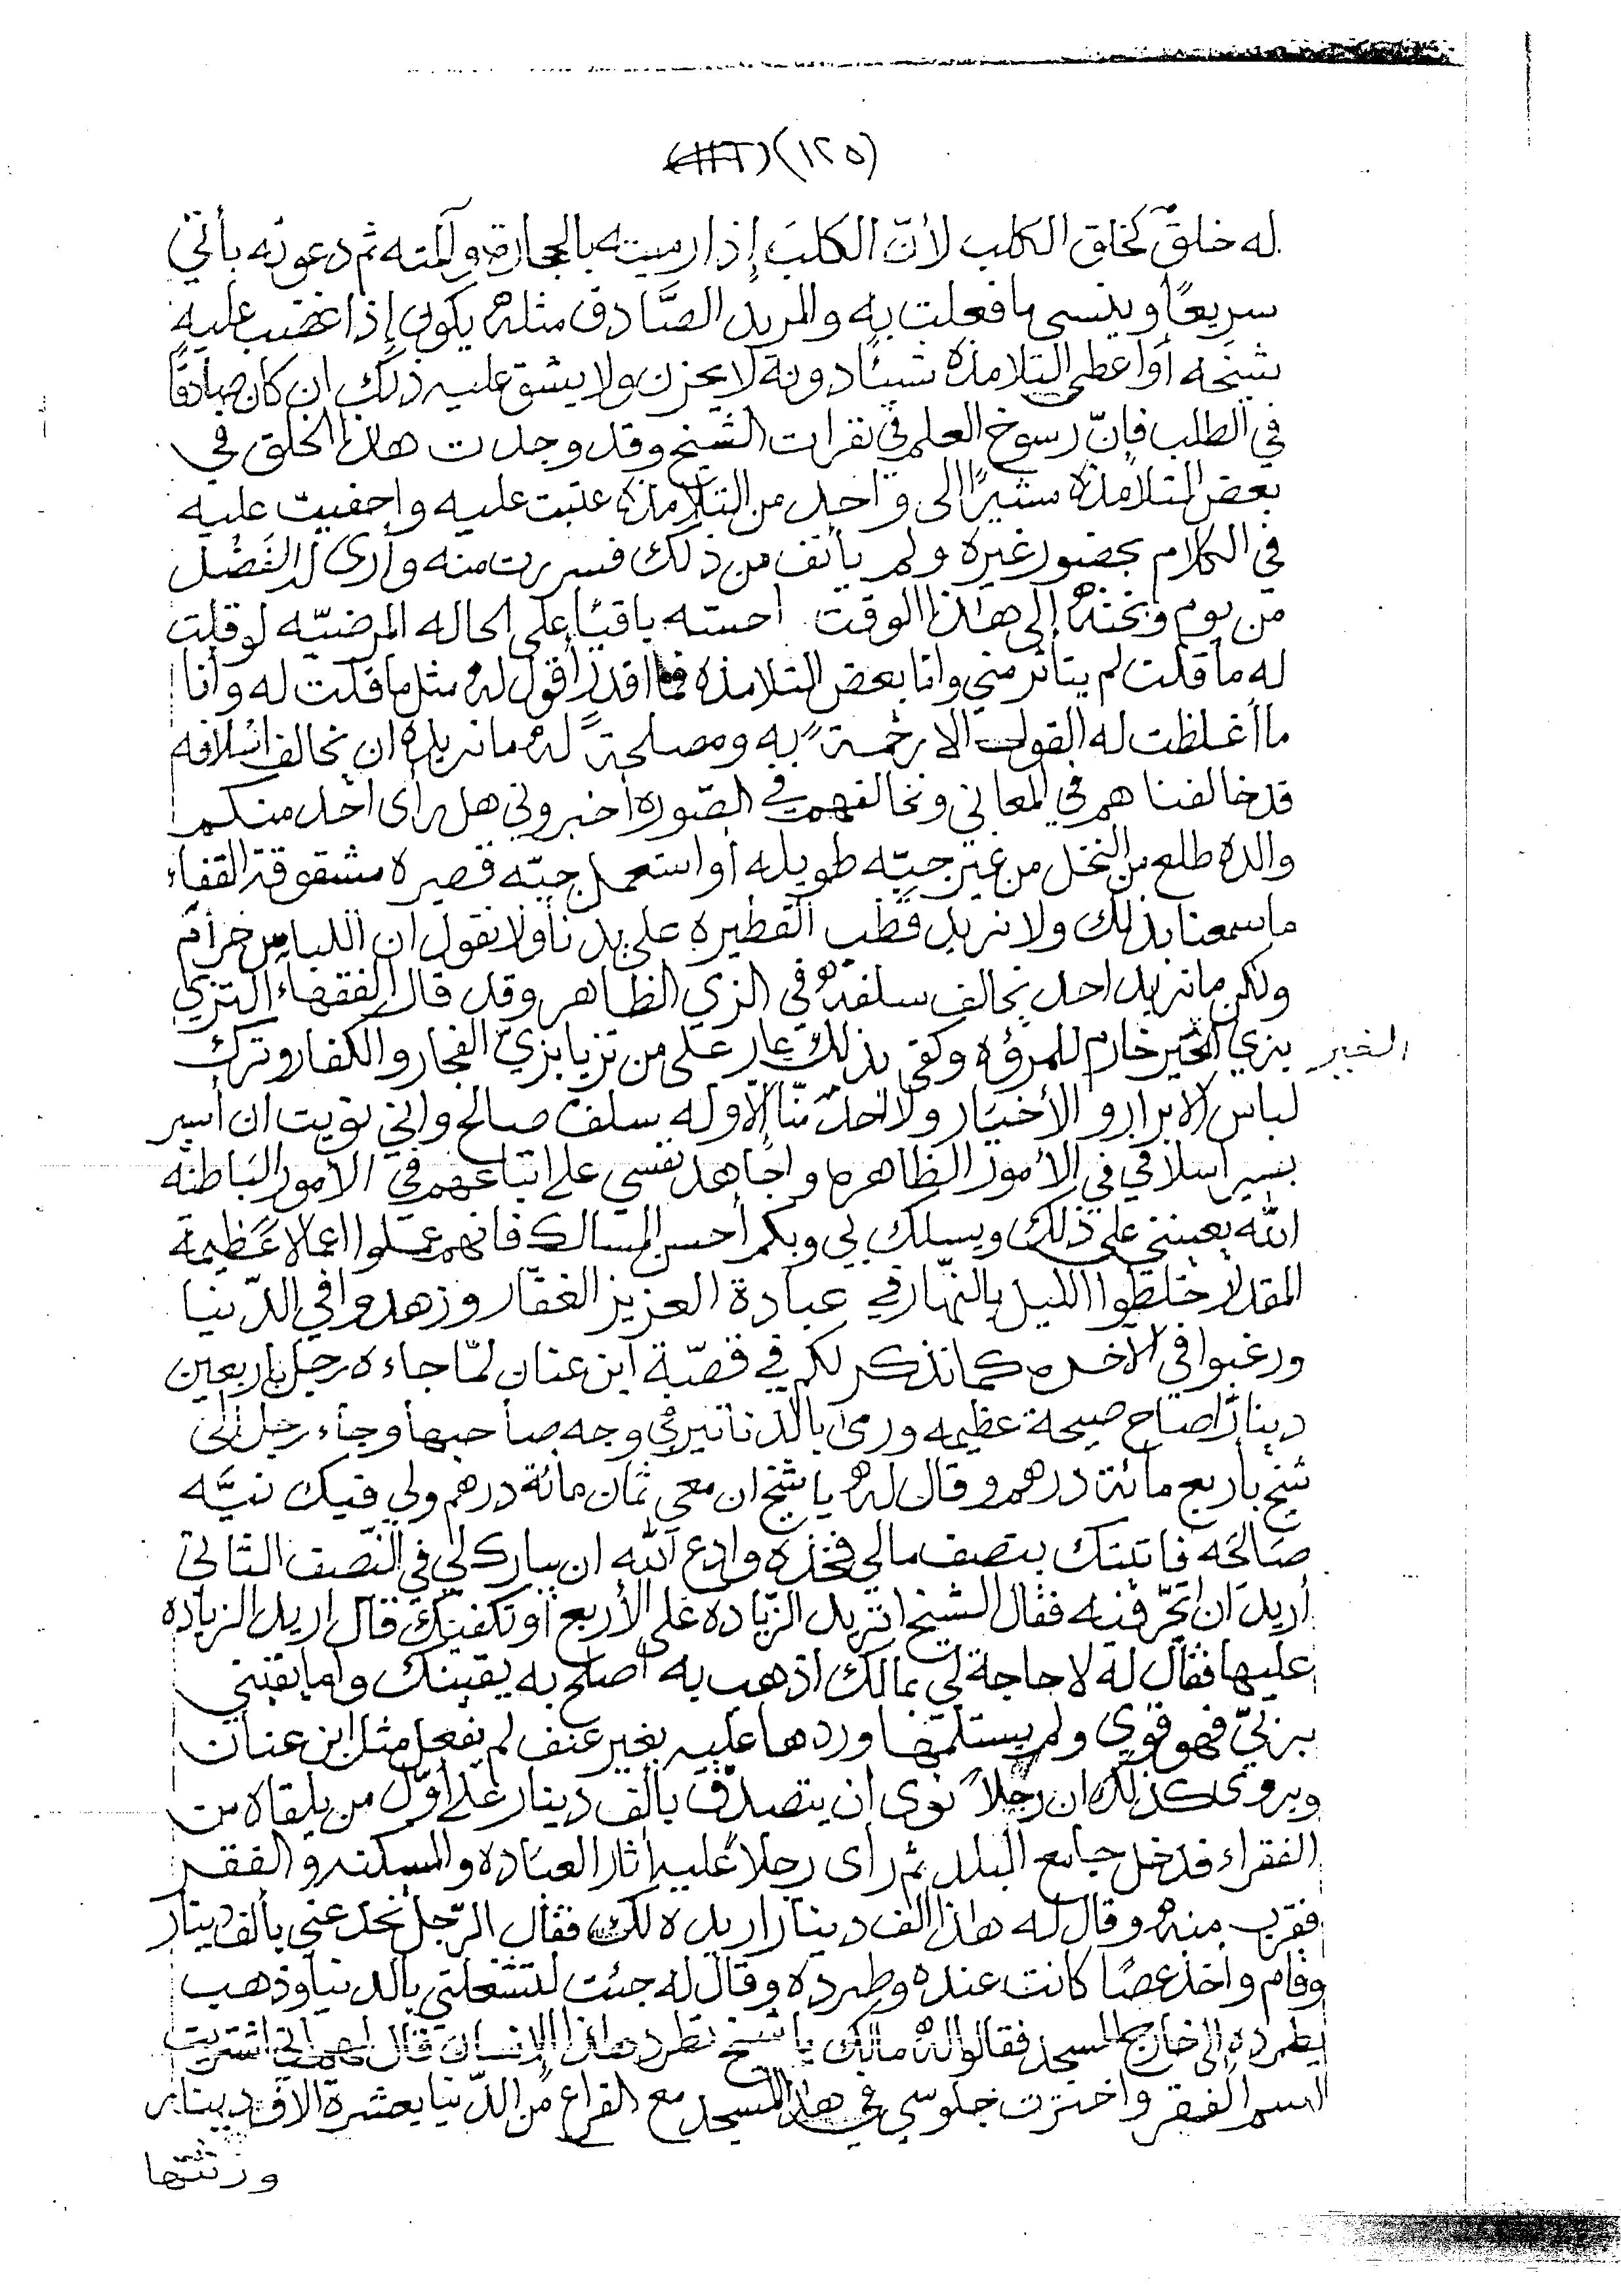 (١٢٥)
له خلقٌ كخلق الكلب لأنّ الكلبَ إذا رميته بالحجارة وآلمته ثم دعوته يأتي
سريعًا وينسى ما فعلت به والمريد الصَّادق مثلهُ يكون إذا غضب عليه
شيخه أو أعطى التلامذه شيئًا دونه لا يحزن ولا يشق عليه ذلك ان كان صادقًا
في الطلب فإنّ رسوخ العلم في نقرات الشيخ وقد وجدت هذا الخلق في
بعض التلامذه مشيرًا الى واحد من التلامذه عتبت عليه واحفيت عليه
في الكلام بحضور غيره ولم يأنف من ذلك فسررت منه وأرى له الفَضْل
من يوم وبخته إلى هذا الوقت احسّه باقيًا على الحاله المرضيّه لو قلت
له ما قلت لم يتأثر مني وانا بعض التلامذه ما اقدر أقول له مثل ما قلت له وأنا
ما أغلظت له القول الا رحمةً به ومصلحةً لهُ ما نريده ان يخالف اسلافه
قد خالفناهم في المعاني ونخالفهم في الصّوره أخبروني هل رأى احد منكم
والده طلع من النخل من غير جبّه طويله أو استعمل جبّه قصيره مشقوقة القفاء
ما سمعنا بذلك ولا نريد قطب القطيره على يدنا ولا نقول ان اللباس حرام
ولكن ما نريد احد يخالف سلفهُ في الزي الظاهر وقد قال الفقهاء التزيي
بزي الغير خارم للمروّه وكفى بذلك عار على من تزيا بزيّ الفجار والكفار وترك
الغير
لباس الابرار والأخيار ولا احدٌ منّا إلاّ وله سلفٌ صالح واني نويت ان أسير
بسير أسلافي في الأمور الظاهره واجاهد نفسي على اتباعهم في الامور الباطنه
الله يعينني على ذلك ويسلك بي وبكم أحسن المسالك فانهم عملوا اعمالاً عَظيمة
المقدار خلطوا الليل بالنّهار في عبادة العزيز الغفّار وزهدوا في الدّنيا
ورغبوا في الاخره كما نذكر لكم في قصّة ابن عنان لمّا جاءه رجل باربعين
دينارًا صاح صيحة عظيمه ورمى بالدنانير في وجه صاحبها وجاء رجل إلى
شيخ بأربع مائة درهم وقال لهُ يا شيخ ان معي ثمان مائة درهم ولي فيك نيَّه
صَالحه فاتيتك بنصف مالي فخذه وادع الله ان يبارك لي في النّصف الثاني
أريدَ أن اتّجر فيه فقال الشيخ اتريد الزّياده على الأربع أو تكفيك قال اريد الزياده
عليها فقال له لا حاجة لي بمالك اذهب به اصلح به يقينك واما يقيني
بربيّ فهو قوي ولم يستلمها وردها عليه بغير عنف لم يفعل مثل ابن عنان
ويروى كذلك ان رجلاً نوى ان يتصدّق بألف دينار على أوّل من يلقاه من
الفقراء فدخل جامع البلد ثم رأى رجلاً عليه اثار العبَاده والمسكنه والفقر
فقرب منهُ وقال له هذا الف دينار اريده لك فقال الرّجل تخدعني بألف دينار
وقام واخذ عصًا كانت عنده وطرده وقال له جئت لتشغلني بالدنيا وذهب
يطرده إلى خارج المسجد فقالوا لهُ مالك يا شيخ تطرد هذا الإنسان قال لهم إني اشتريت
اسم الفقر واخترت جلوسي في هذا المسجد مع الفراغ من الدّنيا بعشرة الاف دينار
ورثتها